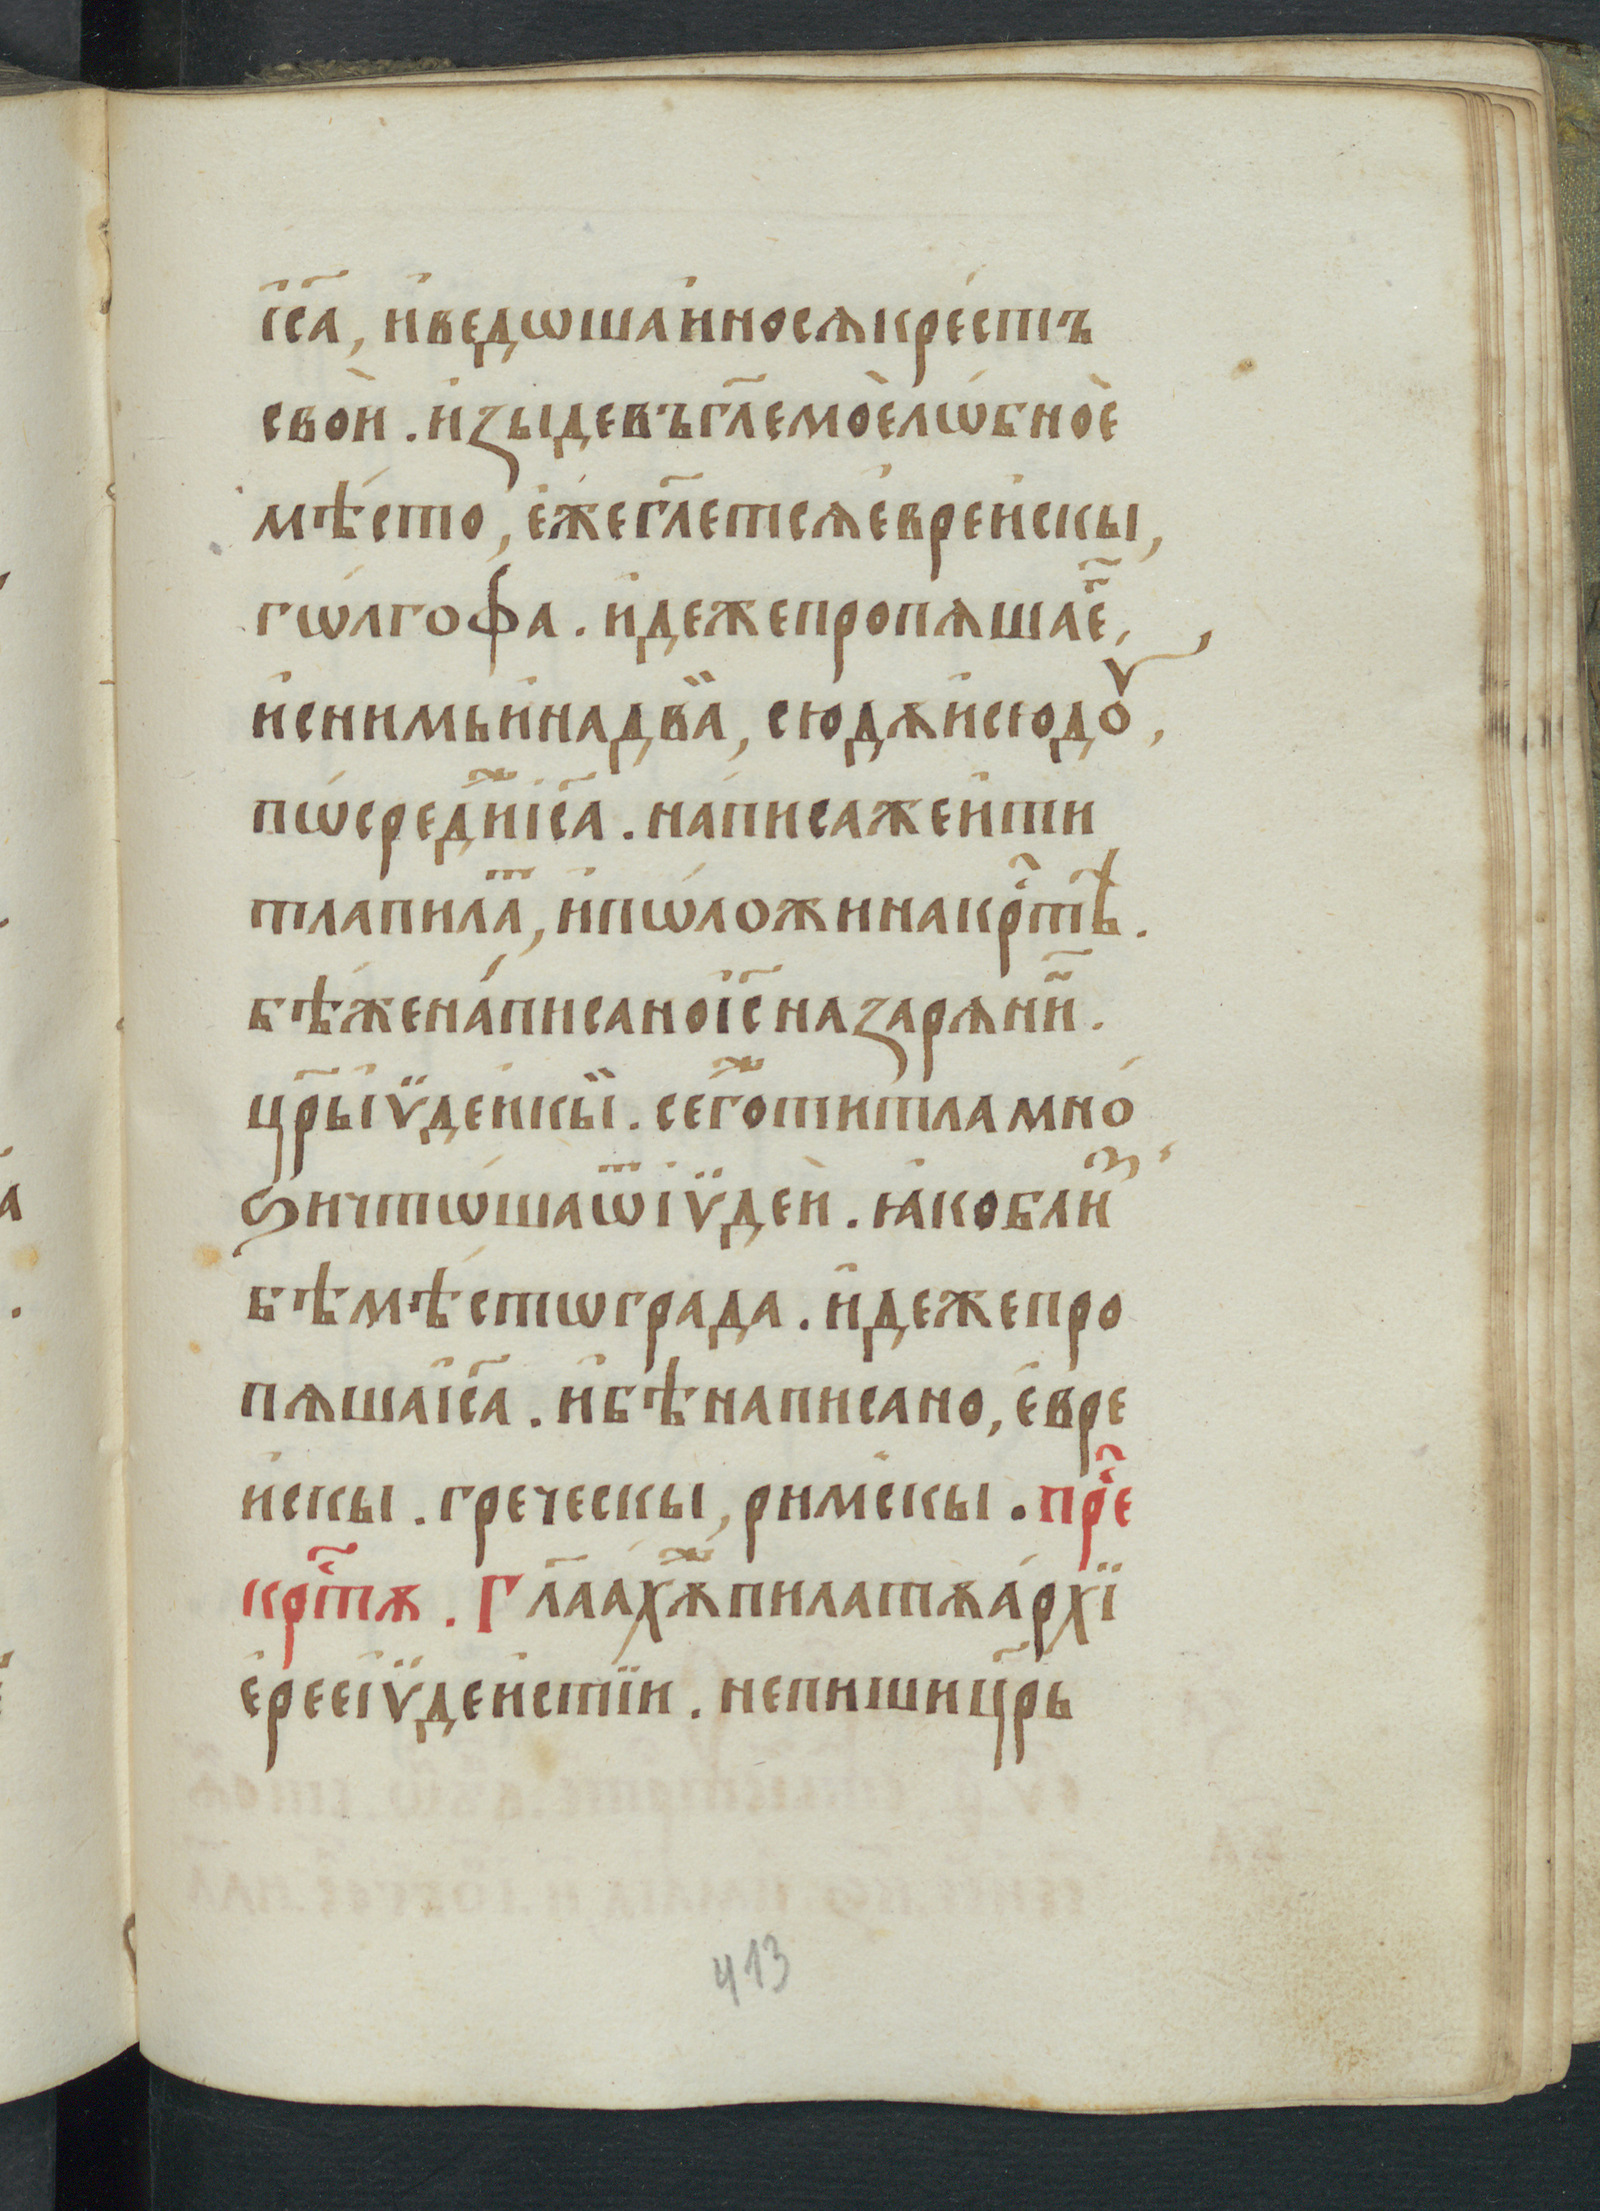 і҆с҃а, и҆ведѡшаи҆носѧкре́стъ
свои̇̀. и҆ꙁыдевъгл҃емо̀елѡ́бноѐ
мѣ́сто, є҆́жегл҃етсѧє҆вреи҆скы,
гѡ́лгоѳа. и҆дежепропѧшае҆̃,
и҆снимьи҆надва̏, сюдѫи҆сюдꙋ,
пѡ́средⷤи҆і҆с҃а. на́писажеи҆ти
тлапилаⷮ, и҆пѡ́ложинакрⷭ҇тѣ.
бѣ́жена́писаної҆с҃наꙁарѧни҃.
цр҃ьі҆ѵ̈деи҆кы̏. сегоⷤтитламно́
ѕичтѡ́шаѿі҆ѵ̈деи̇̀. ꙗкоблиꙁ̾
бѣмѣ́стѡграда. и҆дежепро
пѧшаі҆с҃а. и҆бѣнаписано, є҆вре
и҆скы. греческы, римскы. прⷭ҇е
крⷭ҇тѫ. Гл҃аахѫⷤпилатѫа́рхї
є҆рееі҆ѵ̈деи҆стїи. непишицр҃ь
413